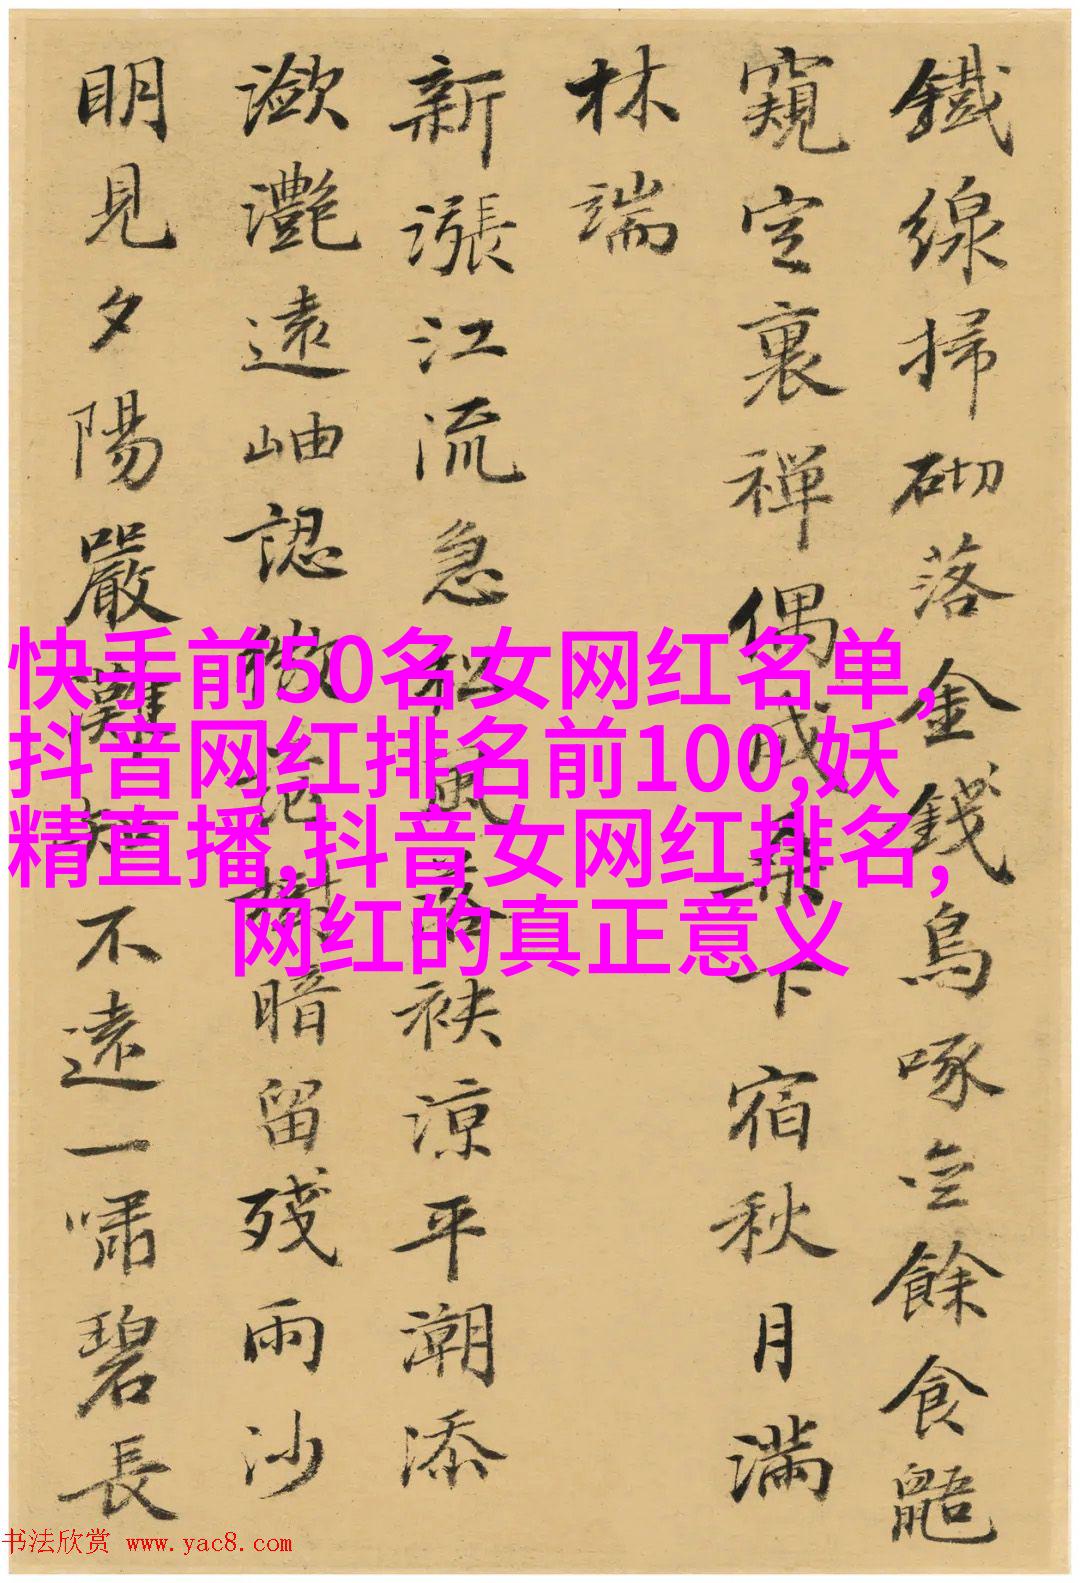 鐵線掃砌落金錢鳥啄餘食鼯
窺定裏禪偶成桑下宿秋月滿
林端
新漲江流急松風落袂涼平潮添
瀲灩遠岫認微茫樹暗留殘雨沙
明見夕陽嚴灘知不遠一嘯碧長
快手前50名女网红名单,
抖音网红排名前100,妖
精直播,抖音女网红排名,
网红的真正意义
书法欣赏 www.yac8.com